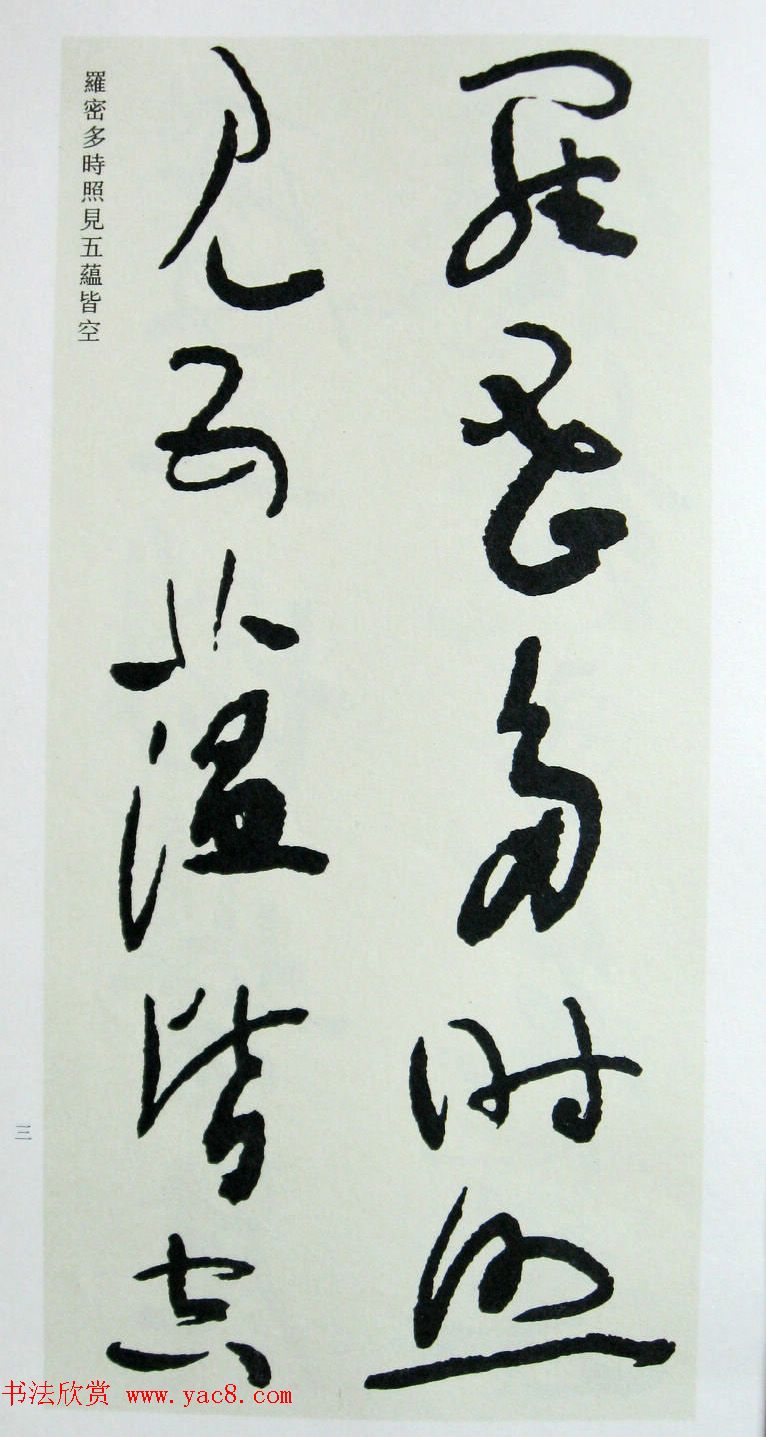 羅密多時照
見五蘊皆空
羅密多時照見五蘊皆空
三
书法欣赏 www.yac8.com